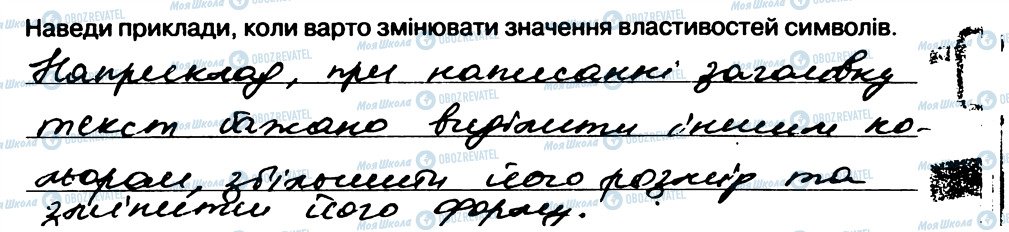 Наведи приклади, коли варто змінювати значення властивостей символів.
Наприклад, при написанні заголовку
текст бажано виділити іншим ко-
льором, збільшити його розмір та
змінити його форму.